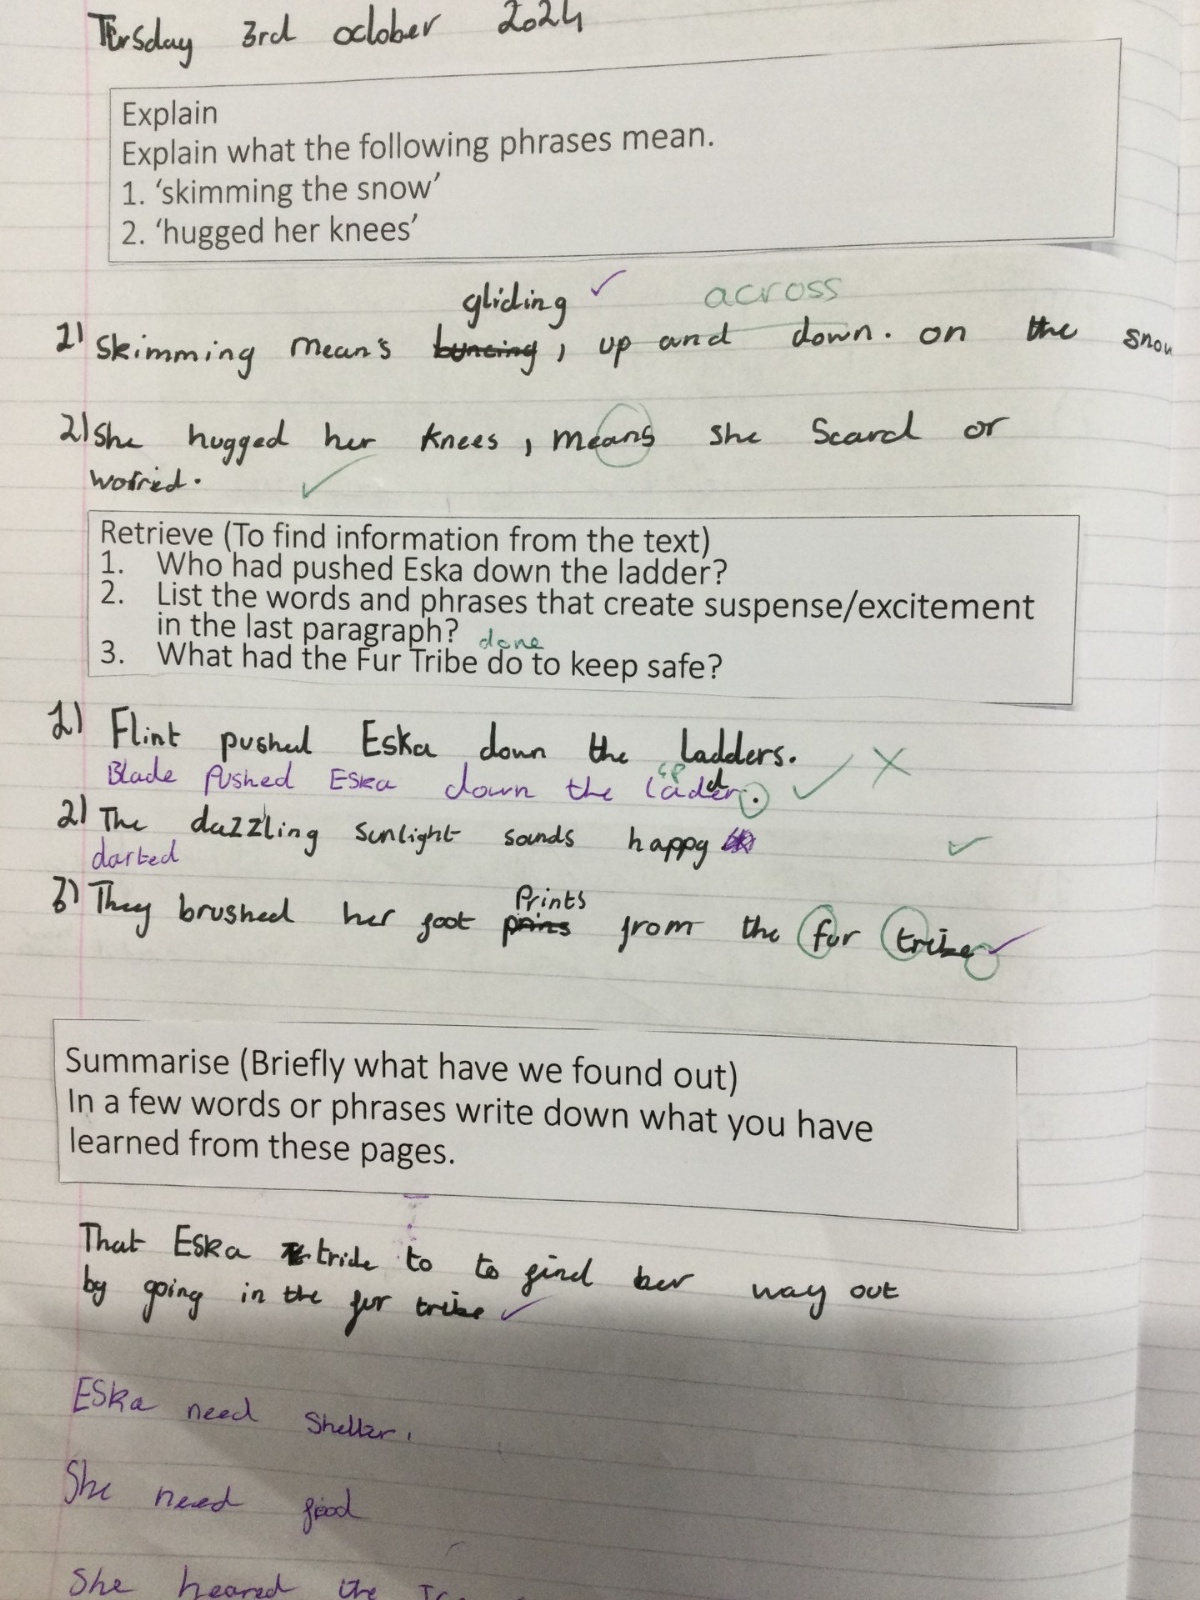 Tursday 3rd october 2024
Explain
Explain what the following phrases mean.
1. ‘skimming the snow’
2. ‘hugged her knees’
gliding ✓ across
1) Skimming means buncing, up and down. on the snow
2) She hugged her knees, means she Scard or
worried. ✓
Retrieve (To find information from the text)
1. Who had pushed Eska down the ladder?
2. List the words and phrases that create suspense/excitement
in the last paragraph?
done
3. What had the Fur Tribe do to keep safe?
1) Flint pushed Eska down the ladders. ✓ X
Blade Pushed Eska down the ladder.
sp
2) The dazzling sunlight sounds happy ✓
darted
Prints
3) They brushed her foot prins from the fur tribe ✓
Summarise (Briefly what have we found out)
In a few words or phrases write down what you have
learned from these pages.
That Eska tride to to find her way out
by going in the fur tribe ✓
Eska need Shelter.
She need food
She heared the